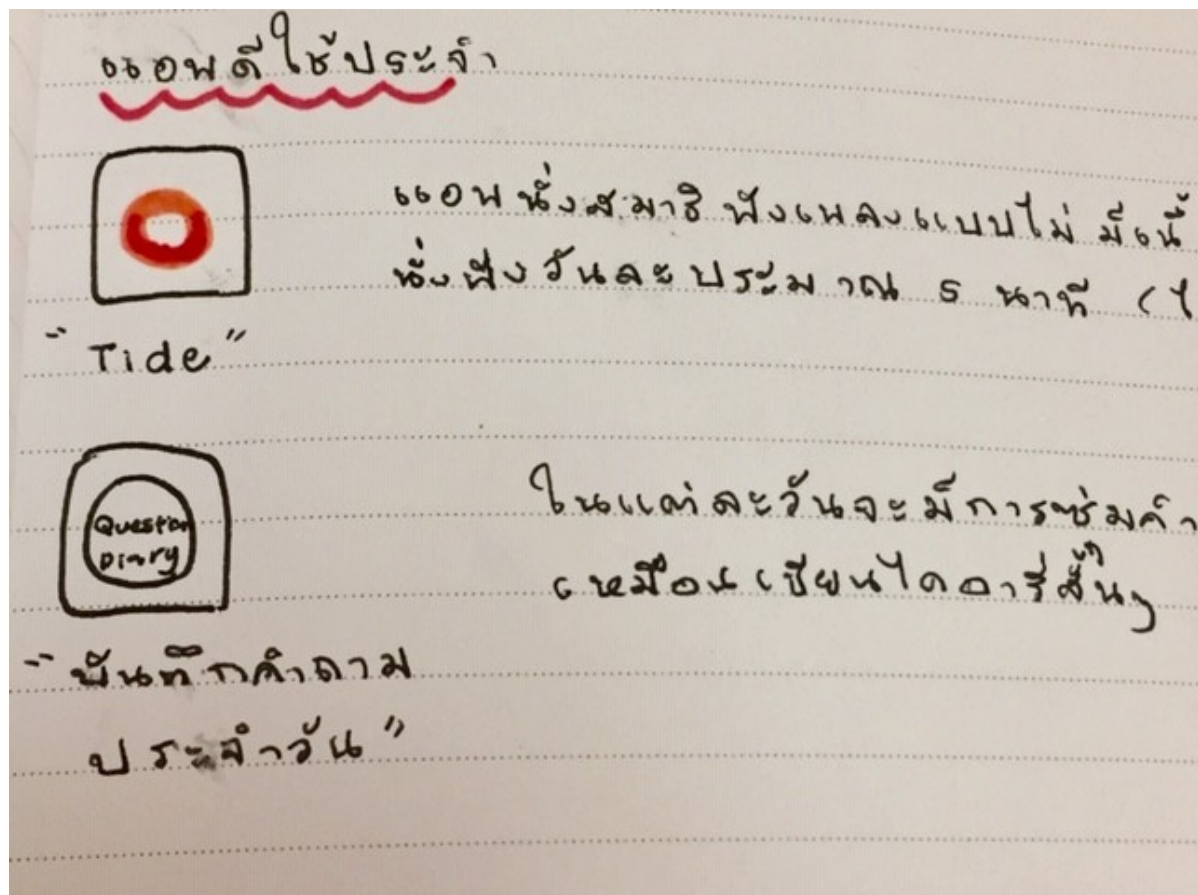 แอพดีใช้ประจำ
แอพนั่งสมาธิ ฟังเพลงแบบไม่ มีเนื้
นั่งฟังวันละประมาณ 5 นาที (ไ
"Tide"
Question
Diary
ในแต่ละวันจะมีการซุ่มคำ
เหมือนเขียนไดอารี่สั้นๆ
"บันทึกคำถาม
ประจำวัน"